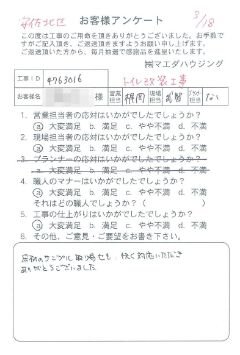 安佐北区 お客様アンケート 3/18
この度は工事のご用命を頂きありがとうございました。お手数で
すがご記入頂き、ご返送頂きますようお願い申し上げます。
ご返送頂いた方から、毎月抽選で感謝品を進呈致します。
㈱マエダハウジング
工事ID 4763016 トイレ改装工事
お客様名 様 営業担当 現場担当 プランナー担当 なし
1. 営業担当者の応対はいかがでしたでしょうか?
a 大変満足 b. 満足 c. やや不満 d. 不満
2. 現場担当者の応対はいかがでしたでしょうか?
a 大変満足 b. 満足 c. やや不満 d. 不満
3. プランナーの応対はいかがでしたでしょうか?
a. 大変満足 b. 満足 c. やや不満 d. 不満
4. 職人のマナーはいかがでしたでしょうか?
a 大変満足 b. 満足 c. やや不満 d. 不満
それはどの職人でしょうか? ( )
5. 工事の仕上がりはいかがでしたでしょうか?
a 大変満足 b. 満足 c. やや不満 d. 不満
6. その他、ご意見・ご要望をお書き下さい。
のサンプル取寄せも、快く対応いただき
ありがとうございました